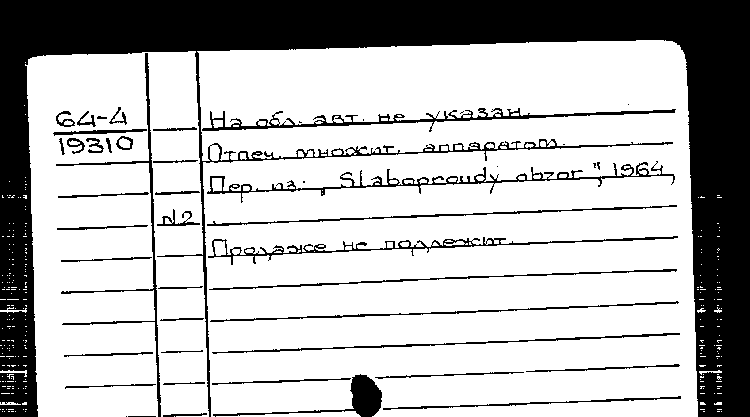 64-4 На обл. авт. не указан.
19310 Отпеч. множит. аппаратом.
Пер. из: „Slaboproudy obzor“, 1964,
N2.
Продаже не подлежит.